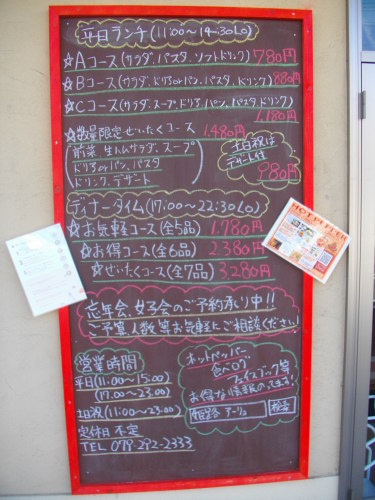 平日ランチ(11:00〜14:30LO)
☆Aコース(サラダ、パスタ、ソフトドリンク) 780円
☆Bコース(サラダ、ドリアorパン、パスタ、ドリンク) 880円
☆Cコース(サラダ・スープ、ドリア、パン、パスタ、ドリンク)
1,180円
☆数量限定ぜいたくコース 1,480円
前菜 生ハムサラダ、スープ
ドリアorパン、パスタ
ドリンク、デザート
土日祝は
デザート付
980円
ディナータイム(17:00〜22:30LO)
☆お気軽コース(全5品) 1,780円
☆お得コース(全6品) 2,380円
☆ぜいたくコース(全7品) 3,280円
忘年会、女子会のご予約承り中!!
ご予算、人数等お気軽にご相談ください!
営業時間
平日(11:00〜15:00)
(17:00〜23:00)
土日祝(11:00〜23:00)
定休日 不定
TEL 079-292-2333
ホットペッパー、
食べログ
フェイスブック等
お得な情報のってます!
姫路 検索
HOT PEPPER